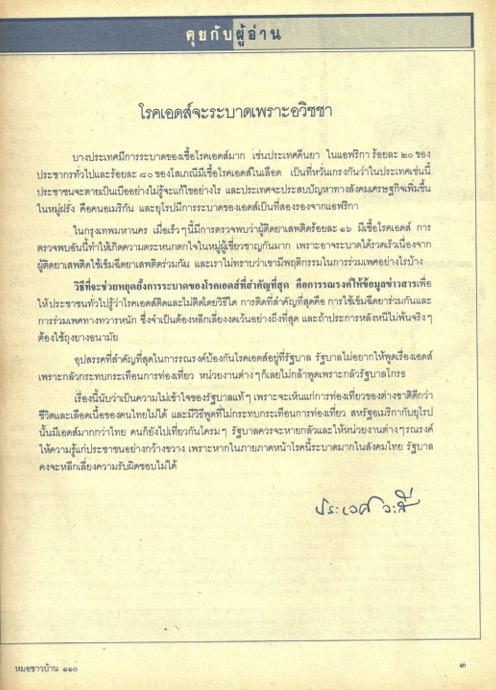 คุยกับผู้อ่าน
โรคเอดส์จะระบาดเพราะอวิชชา
บางประเทศมีการระบาดของเชื้อโรคเอดส์มาก เช่นประเทศคีนยา ในแอฟริกา ร้อยละ ๒๐ ของ
ประชากรทั่วไปและร้อยละ ๘๐ ของโสเภณีมีเชื้อโรคเอดส์ในเลือด เป็นที่หวั่นเกรงกันว่าในประเทศเช่นนี้
ประชาชนจะตายเป็นเบืออย่างไม่รู้จะแก้ไขอย่างไร และประเทศจะประสบปัญหาทางสังคมเศรษฐกิจเพิ่มขึ้น
ในหมู่ฝรั่ง คือคนอเมริกัน และยุโรปมีการระบาดของเอดส์เป็นที่สองรองจากแอฟริกา
ในกรุงเทพมหานคร เมื่อเร็วๆนี้มีการตรวจพบว่าผู้ติดยาเสพติดร้อยละ ๑๖ มีเชื้อโรคเอดส์ การ
ตรวจพบอันนี้ทำให้เกิดความตระหนกตกใจในหมู่ผู้เชี่ยวชาญกันมาก เพราะอาจระบาดได้รวดเร็วเนื่องจาก
ผู้ติดยาเสพติดใช้เข็มฉีดยาเสพติดร่วมกัน และเราไม่ทราบว่าเขามีพฤติกรรมในการร่วมเพศอย่างไรบ้าง
วิธีที่จะช่วยหยุดยั้งการระบาดของโรคเอดส์ที่สำคัญที่สุด คือการรณรงค์ให้ข้อมูลข่าวสารเพื่อ
ให้ประชาชนทั่วไปรู้ว่าโรคเอดส์ติดและไม่ติดโดยวิธีใด การติดที่สำคัญที่สุดคือ การใช้เข็มฉีดยาร่วมกันและ
การร่วมเพศทางทวารหนัก ซึ่งจำเป็นต้องหลีกเลี่ยงงดเว้นอย่างถึงที่สุด และถ้าประการหลังหนีไม่พ้นจริงๆ
ต้องใช้ถุงยางอนามัย
อุปสรรคที่สำคัญที่สุดในการรณรงค์ป้องกันโรคเอดส์อยู่ที่รัฐบาล รัฐบาลไม่อยากให้พูดเรื่องเอดส์
เพราะกลัวกระทบกระเทือนการท่องเที่ยว หน่วยงานต่างๆก็เลยไม่กล้าพูดเพราะกลัวรัฐบาลโกรธ
เรื่องนี้นับว่าเป็นความไม่เข้าใจของรัฐบาลแท้ๆ เพราะจะเห็นแก่การท่องเที่ยวของต่างชาติดีกว่า
ชีวิตและเลือดเนื้อของคนไทยไม่ได้ และมีวิธีพูดที่ไม่กระทบกระเทือนการท่องเที่ยว สหรัฐอเมริกากับยุโรป
นั้นมีเอดส์มากกว่าไทย คนก็ยังไปเที่ยวกันโครมๆ รัฐบาลควรจะหายกลัวและให้หน่วยงานต่างๆรณรงค์
ให้ความรู้แก่ประชาชนอย่างกว้างขวาง เพราะหากในภายภาคหน้าโรคนี้ระบาดมากในสังคมไทย รัฐบาล
คงจะหลีกเลี่ยงความรับผิดชอบไม่ได้
ประเวศ วะสี
หมอชาวบ้าน ๑๑๐
๓